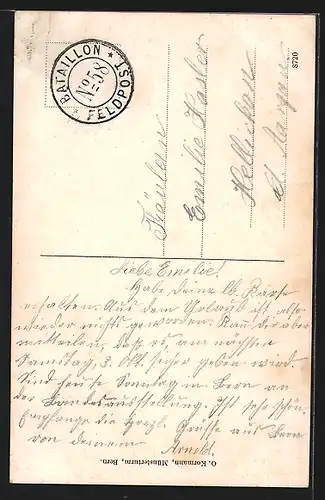 BATAILLON * FELDPOST *
No 58
8720
Fräulein
Emilie Hasler
Hellikon
Kt. Aargau
Liebe Emilie!
Habe deine lb. Karte
erhalten. Aus dem Urlaub ist also
wieder nichts geworden. Kann dir aber
mitteilen, daß es am nächsten
Samstag, 3. Okt. sicher geben wird.
Sind heute Sonntag in Bern an
der Landesausstellung. Ist sehr schön.
Empfange die herzl. Grüsse aus Bern
von deinem Arnold.
O. Kormann, Münsterturm, Bern.